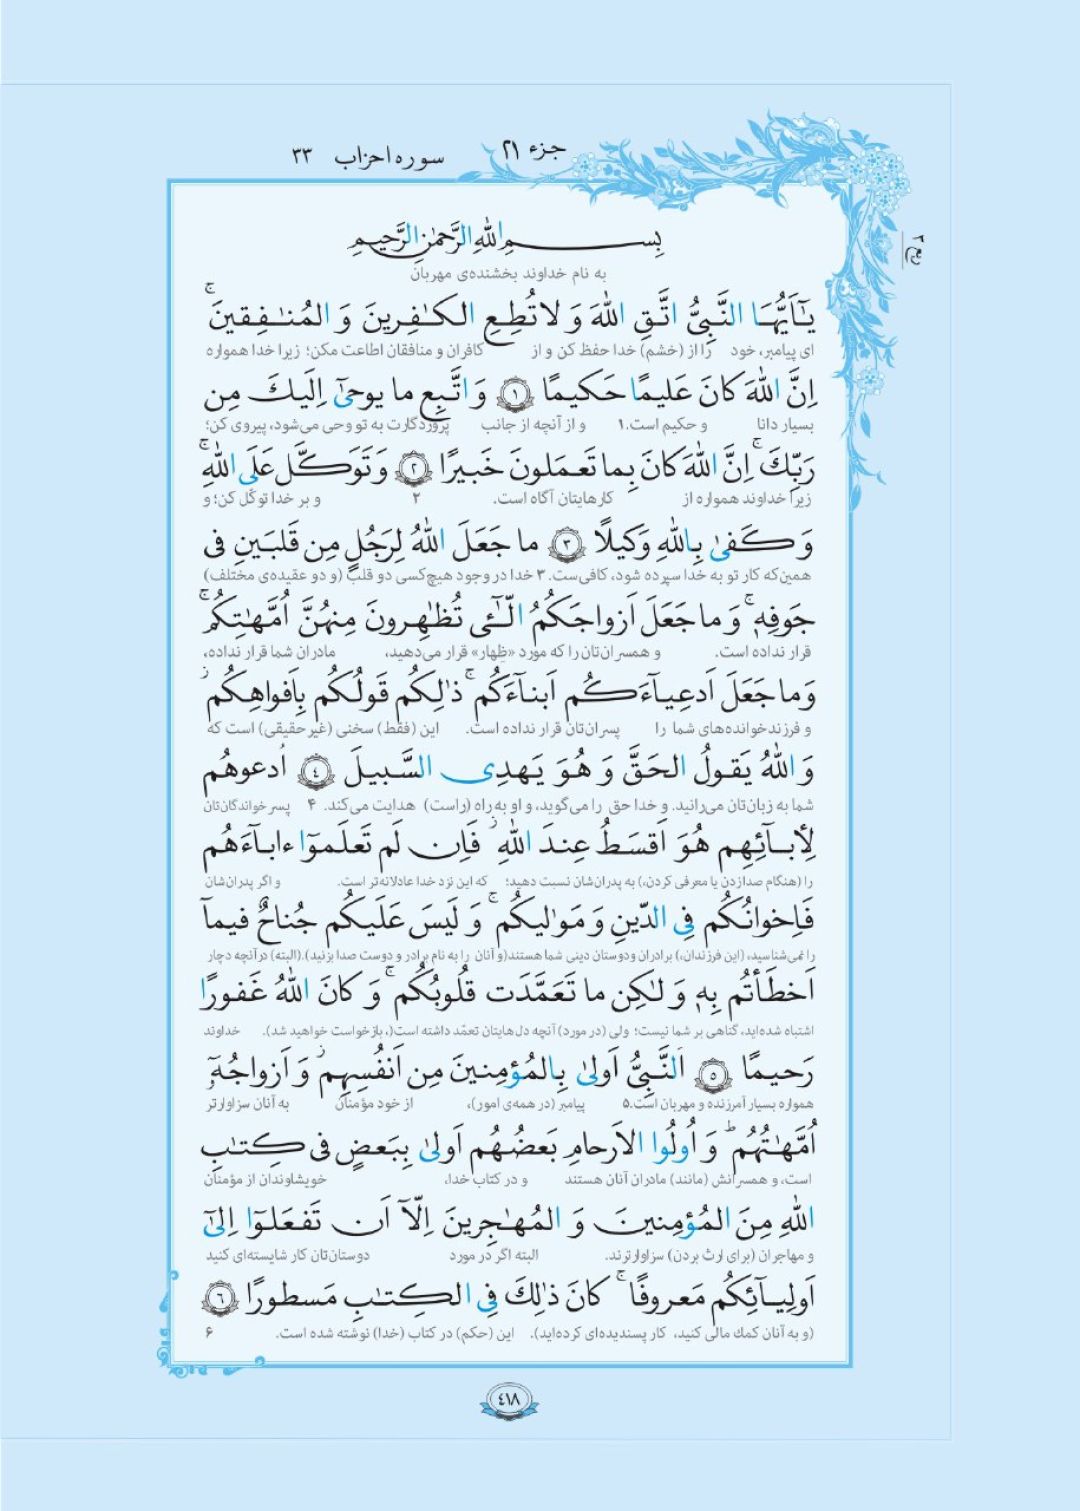 جزء ۲۱
سوره احزاب ۳۳
ربع ۳
بِسمِ اللهِ الرَّحمٰنِ الرَّحيمِ
به نام خداوند بخشنده‌ی مهربان
يٰٓاَيُّهَا النَّبِيُّ اتَّقِ اللهَ وَ لا تُطِعِ الكٰفِرينَ وَ المُنٰفِقينَ ۚ
ای پیامبر، خود را از (خشم) خدا حفظ کن و از کافران و منافقان اطاعت مکن؛ زیرا خدا همواره
اِنَّ اللهَ كانَ عَليمًا حَكيمًا ﴿١﴾ وَ اتَّبِع ما يوحىٰٓ اِلَيكَ مِن
بسیار دانا و حکیم است.۱ و از آنچه از جانب پروردگارت به تو وحی می‌شود، پیروی کن؛
رَبِّكَ ۚ اِنَّ اللهَ كانَ بِما تَعمَلونَ خَبيرًا ﴿٢﴾ وَ تَوَكَّل عَلَى اللهِ ۚ
زیرا خداوند همواره از کارهایتان آگاه است. ۲ و بر خدا توکّل کن؛ و
وَ كَفىٰ بِاللهِ وَكيلًا ﴿٣﴾ ما جَعَلَ اللهُ لِرَجُلٍ مِن قَلبَينِ فى
همین‌که کار تو به خدا سپرده شود، کافی‌ست. ۳ خدا در وجود هیچ‌کسی دو قلب (و دو عقیده‌ی مختلف)
جَوفِهٖ ۚ وَ ما جَعَلَ اَزواجَكُمُ الّٰٓـئى تُظٰهِرونَ مِنهُنَّ اُمَّهٰتِكُم ۚ
قرار نداده است. و همسران‌تان را که مورد «ظهار» قرار می‌دهید، مادران شما قرار نداده،
وَ ما جَعَلَ اَدعِيآءَكُم اَبنآءَكُم ۚ ذٰلِكُم قَولُكُم بِاَفواهِكُم ۖ
و فرزندخوانده‌های شما را پسران‌تان قرار نداده است. این (فقط) سخنی (غیرحقیقی) است که
وَ اللهُ يَقولُ الحَقَّ وَ هُوَ يَهدِى السَّبيلَ ﴿٤﴾ اُدعوهُم
شما به زبان‌تان می‌رانید. و خدا حق را می‌گوید، و او به راه (راست) هدایت می‌کند. ۴ پسرخواندگان‌تان
لِأبآئِهِم هُوَ اَقسَطُ عِندَ اللهِ ۚ فَاِن لَم تَعلَموٓا ءابآءَهُم
را (هنگام صدازدن یا معرفی کردن،) به پدران‌شان نسبت دهید؛ که این نزد خدا عادلانه‌تر است. و اگر پدران‌شان
فَاِخوانُكُم فِى الدّينِ وَ مَوٰليكُم ۚ وَ لَيسَ عَلَيكُم جُناحٌ فيمآ
را نمی‌شناسید، (این فرزندان،) برادران ودوستان دینی شما هستند(و آنان را به نام برادر و دوست صدا بزنید).(البته) درآنچه دچار
اَخطَأتُم بِهٖ وَ لٰكِن ما تَعَمَّدَت قُلوبُكُم ۚ وَ كانَ اللهُ غَفورًا
اشتباه شده‌اید، گناهی بر شما نیست؛ ولی (در مورد) آنچه دل‌هایتان تعمّد داشته است(، بازخواست خواهید شد). خداوند
رَحيمًا ﴿٥﴾ اَلنَّبِيُّ اَولىٰ بِالمُؤمِنينَ مِن اَنفُسِهِم ۖ وَ اَزواجُهٗٓ
همواره بسیار آمرزنده و مهربان است.۵ پیامبر (در همه‌ی امور)، از خود مؤمنان به آنان سزاوارتر
اُمَّهٰتُهُم ۗ وَ اُولُوا الاَرحامِ بَعضُهُم اَولىٰ بِبَعضٍ فى كِتٰبِ
است، و همسرانش (مانند) مادران آنان هستند و در کتاب خدا، خویشاوندان از مؤمنان
اللهِ مِنَ المُؤمِنينَ وَ المُهٰجِرينَ اِلّآ اَن تَفعَلوٓا اِلىٰٓ
و مهاجران (برای ارث بردن) سزاوارترند. البته اگر در مورد دوستان‌تان کار شایسته‌ای کنید
اَولِيآئِكُم مَعروفًا ۚ كانَ ذٰلِكَ فِى الكِتٰبِ مَسطورًا ﴿٦﴾
(و به آنان کمک مالی کنید، کار پسندیده‌ای کرده‌اید). این (حکم) در کتاب (خدا) نوشته شده است. ۶
٤١٨